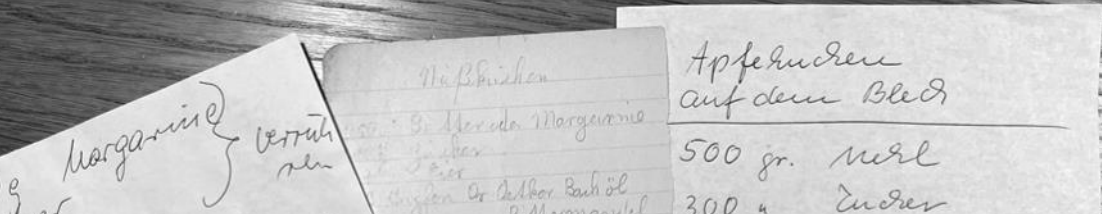 Margarine } verrüh
ren
Nußkuchen
g. Margarine
Zucker
Eier
Dr Oetker Backöl
Apfelkuchen
auf dem Blech
500 gr. Mehl
300 " Zucker